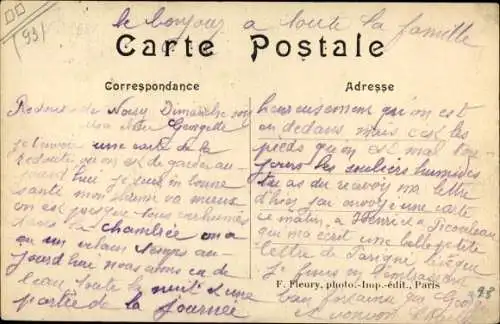 le bonjour a toute la famille
(93)
Carte Postale
Correspondance
Adresse
Redoute de Noisy Dimanche soir
ma chère Georgette
je t'envoie une carte de la
Redoute qu'on est de garde au-
jourd'hui je suis en bonne
santé mon rhume va mieux
on est presque tous enrhumés
dans la chambrée on a
eu un vilain temps au-
jourd'hui nous avons eu de
l'eau toute la nuit et une
partie de la journée
heureusement qu'on est
en dedans mais c'est les
pieds qu'on est mal tou-
jours les souliers humides
tu as du recevoir ma lettre
d'hier j'ai envoyé une carte
ce matin a Henri et a
qui m'a écrit une belle petite
lettre de
je finis en t'embrassant
bien
F. Fleury, photo.-Imp.-édit., Paris